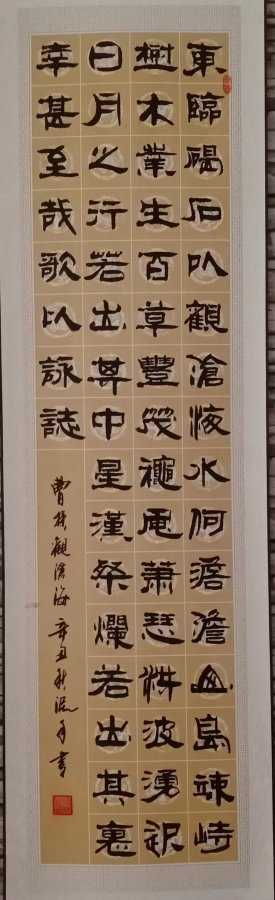 東臨碣石以觀滄海水何澹澹山島竦峙
樹木叢生百草豐茂穐風蕭瑟洪波湧起
日月之行若出其中星漢粲爛若出其裏
幸甚至哉歌以詠誌
曹操觀滄海辛丑秋書